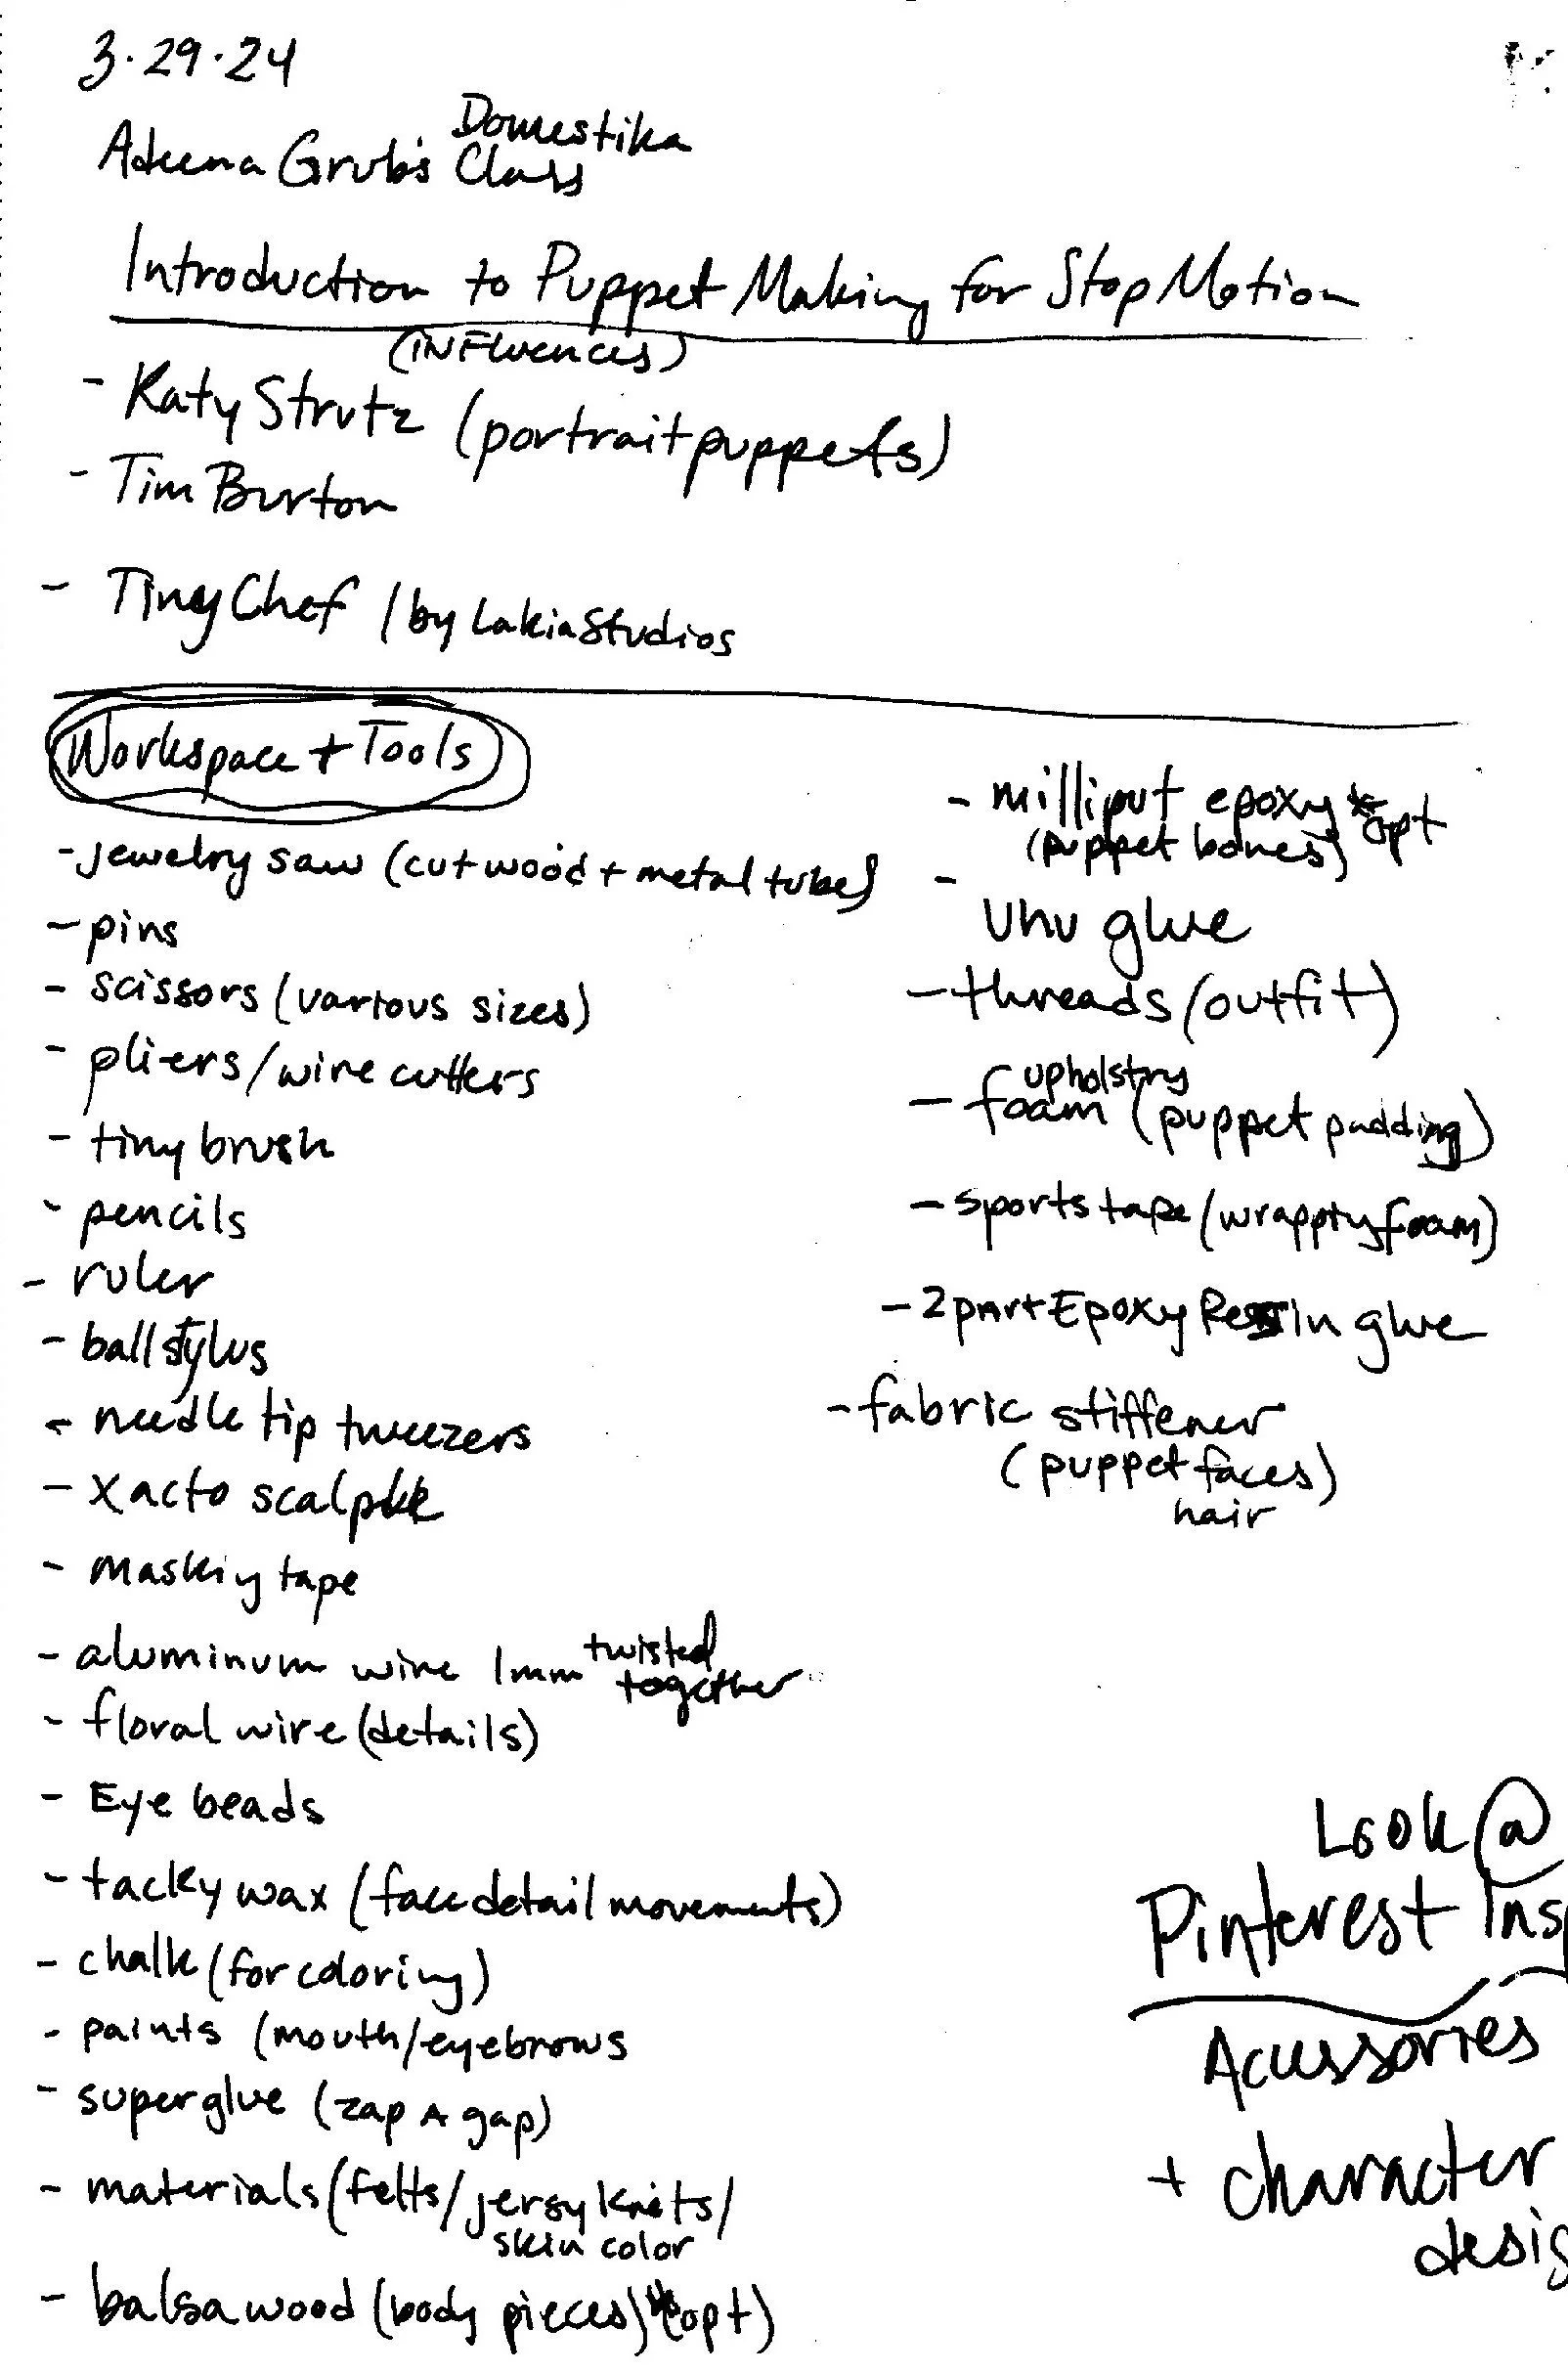 3.29.24
Domestika
Adeena Grub's Class
Introduction to Puppet Making for Stop Motion
(INFluences)
- Katy Strutz (portrait puppets)
- Tim Burton
- Tiny Chef / by Lakia Studios
Workspace + Tools
- jewelry saw (cut wood + metal tube)
- pins
- scissors (various sizes)
- pliers/wire cutters
- tiny brush
- pencils
- ruler
- ball stylus
- needle tip tweezers
- xacto scalple
- masking tape
- aluminum wire 1mm twisted together
- floral wire (details)
- Eye beads
- tacky wax (face detail movements)
- chalk (for coloring)
- paints (mouth/eyebrows
- super glue (zap A gap)
- materials (felts/jersy knits/
skin color
- balsa wood (body pieces) *(opt)
- milliput epoxy * opt
(puppet bones)
- Uhu glue
- threads (outfit)
upholstry
- foam (puppet padding)
- sports tape (wrapping foam)
- 2 part Epoxy Resin glue
- fabric stiffener
(puppet faces)
hair
Look @
Pinterest Insp
Acessories
+ character
desig